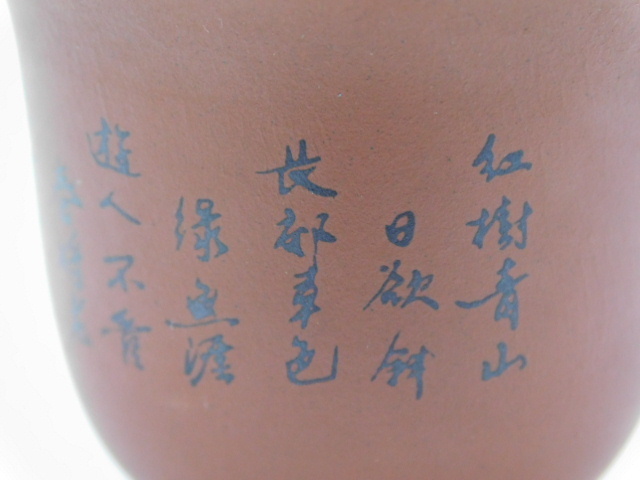 紅樹青山
日欲斜
長郊草色
綠無涯
遊人不管